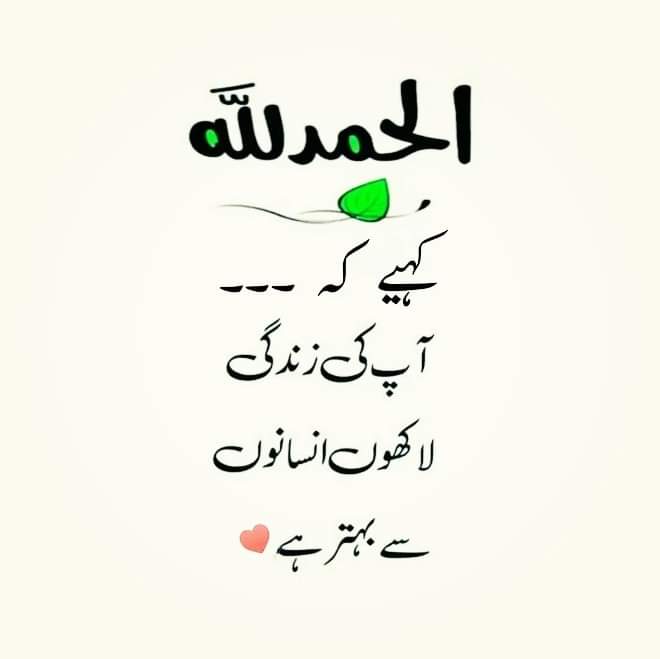 الحمدللّٰه
کہیے کہ ---
آپ کی زندگی
لاکھوں انسانوں
سے بہتر ہے ❤